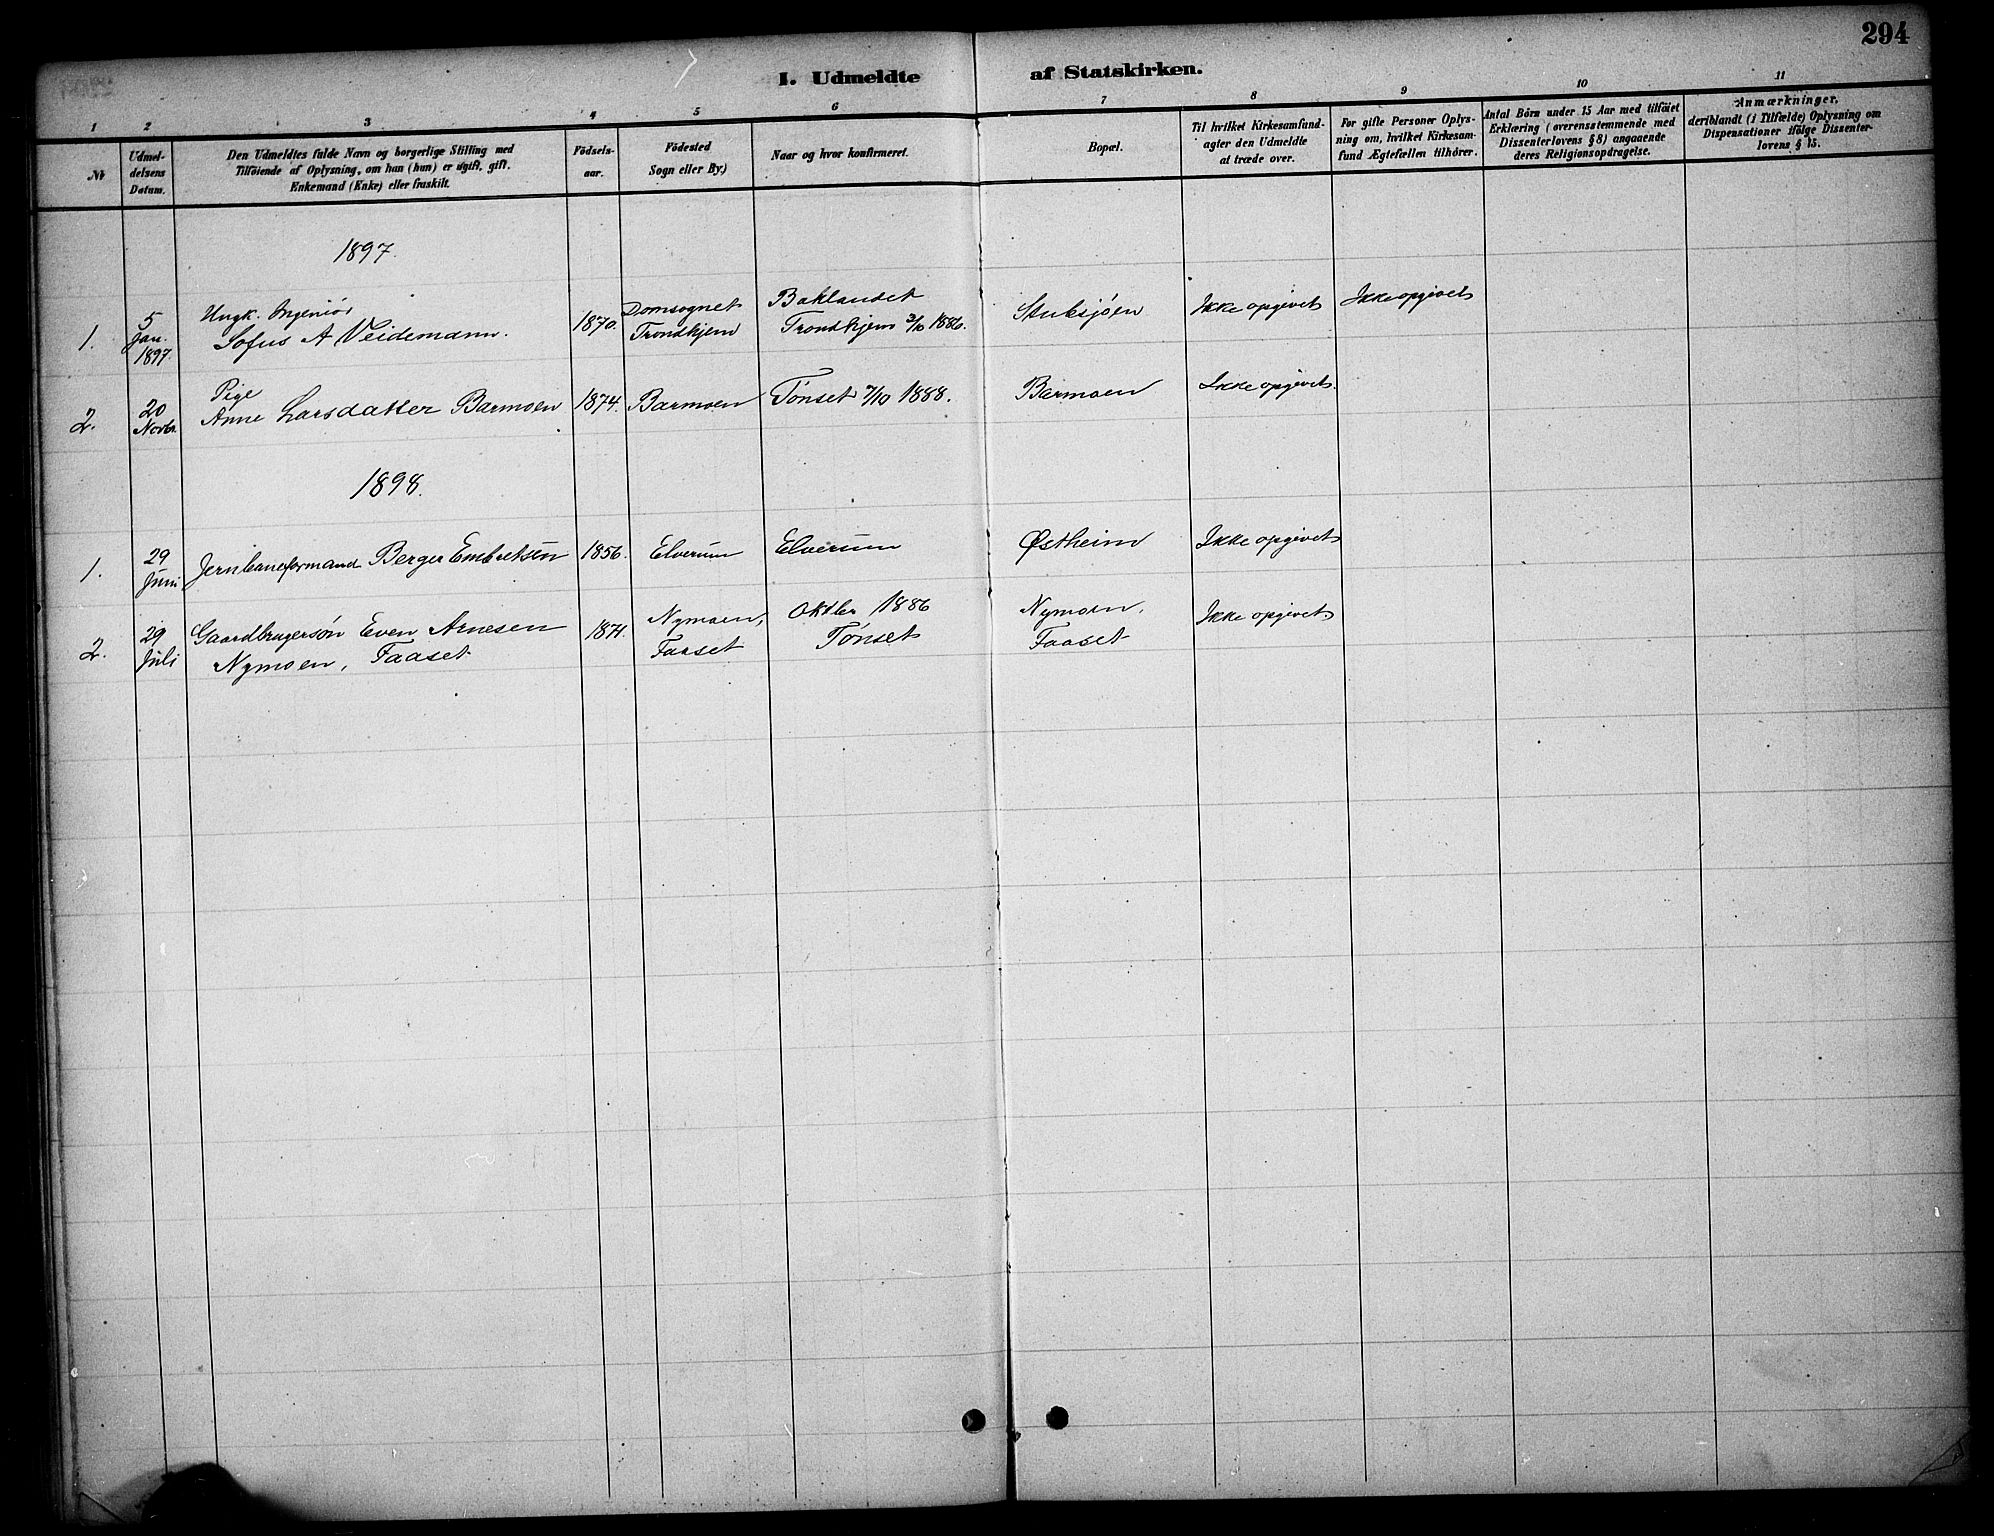 294
I. Udmeldte af Statskirken.
1 2 3 4 5 6 7 8 9 10 11
№
Udmel-
delsens
Datum.
Den Udmeldtes fulde Navn og borgerlige Stilling med
Tilföiende af Oplysning, om han (hun) er ugift, gift.
Enkemand (Enke) eller fraskilt.
Födsels-
aar.
Födested
Sogn eller By.)
Naar og hvor konfirmeret.
Bopæl.
Til hvilket Kirkesamfund-
agter den Udmeldte
at træde over.
For gifte Personer Oplys-
ning om, hvilket Kirkesam-
fund Ægtefællen tilhörer.
Antal Börn under 15 Aar med tilföiet
Erklæring (overensstemmende med
Dissenterlovens § 8) angaaende
deres Religionsopdragelse.
Anmærkninger,
deriblandt (i Tilfælde) Oplysning om
Dispensationer ifölge Dissenter-
lovens § 15.
1897.
1.
5
Jan.
1897.
Ungk. Ingeniör
Sofus A Veidemann.
1870.
Domsognet
Trondhjem
Baklandet
Trondhjem 3/10 1886.
Stubsjøen
Ikke opgivet
Ikke opgivet
2.
20
Novbr.
Pige
Anne Larsdatter Barmoen
1874.
Barmoen
Tönset 7/10 1888.
Barmoen
Ikke opgivet.
1898.
1.
29
Juni
Jernbaneformand Berger Embretsen
1856.
Elverum
Elverum
Østheim
Ikke opgivet
2.
29
Juli
Gaardbrugersön Even Arnesen
Nymoen, Faaset
1871.
Nymoen,
Faaset
Oktbr 1886
Tönset
Nymoen,
Faaset
Ikke opgivet.